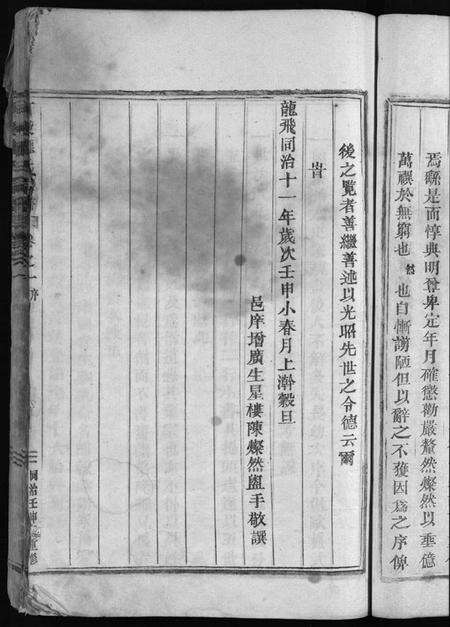 焉繇是而惇典明尊卑定年月確懲勸嚴釐然燦然以垂億
萬禩於無窮也 然 也自慚謭陋但以辭之不獲因爲之序俾
後之覽者善繼善述以光昭先世之令德云爾
旹
龍飛同治十一年歲次壬申小春月上澣穀旦
邑庠增廣生星樓陳燦然盥手敬譔
卷之一 序
同治壬申 重修